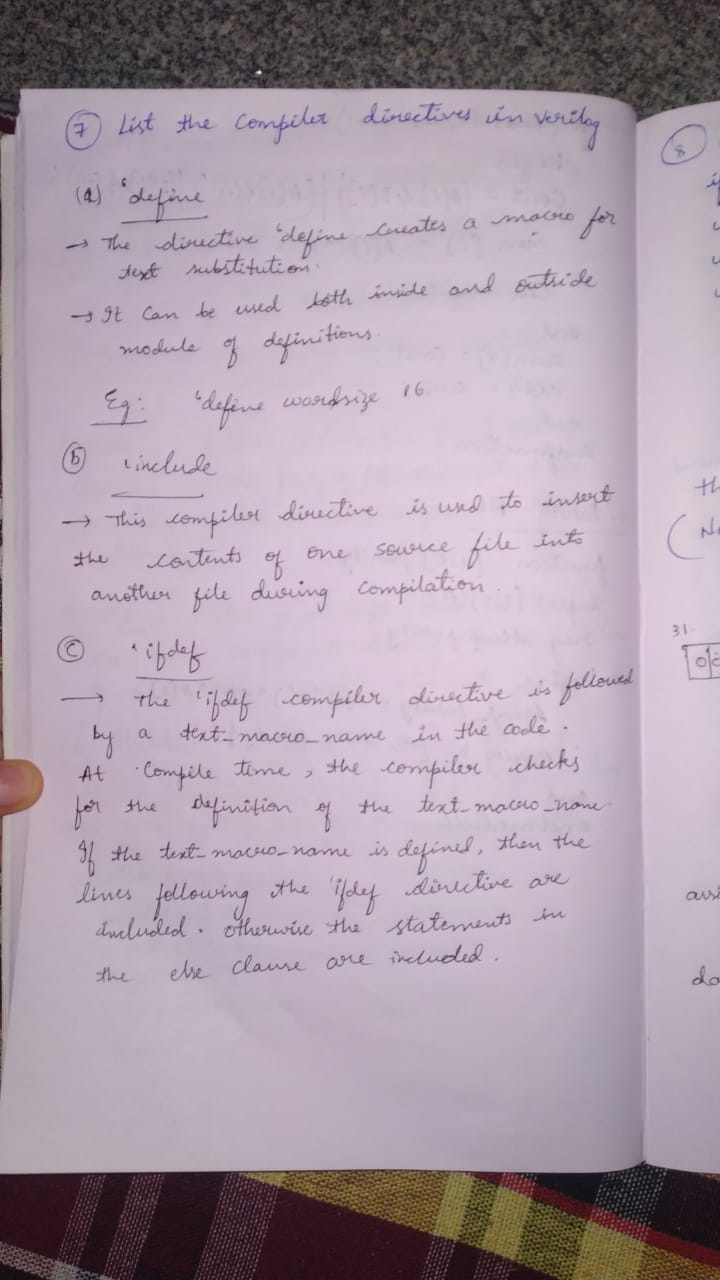 7 List the compiler directives in verilog
(a) 'define
→ The directive 'define creates a macro for
text substitution.
→ It can be used both inside and outside
module of definitions.
Eg: 'define wordsize 16
(b) 'include
→ This compiler directive is used to insert
the contents of one source file into
another file during compilation
(c) 'ifdef
→ The 'ifdef compiler directive is followed
by a text_macro_name in the code.
At compile time, the compiler checks
for the definition of the text_macro_name
If the text_macro_name is defined, then the
lines following the 'ifdef directive are
included. otherwise the statements in
the else clause are included.
8
th
(No
31